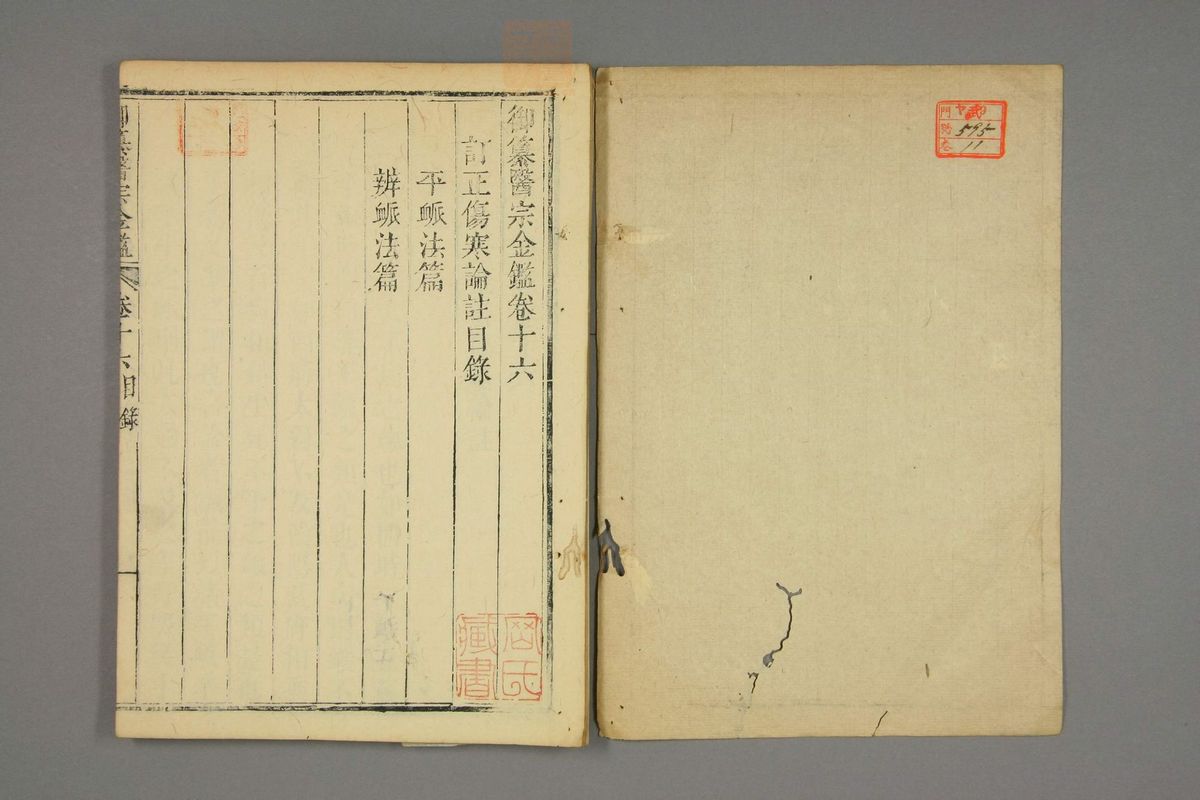 門 ヤ
號 595
卷 11
御纂醫宗金鑑卷十六
訂正傷寒論註目錄
平䘑法篇
辨䘑法篇
御纂醫宗金鑑 卷十六目錄
岡氏
藏書